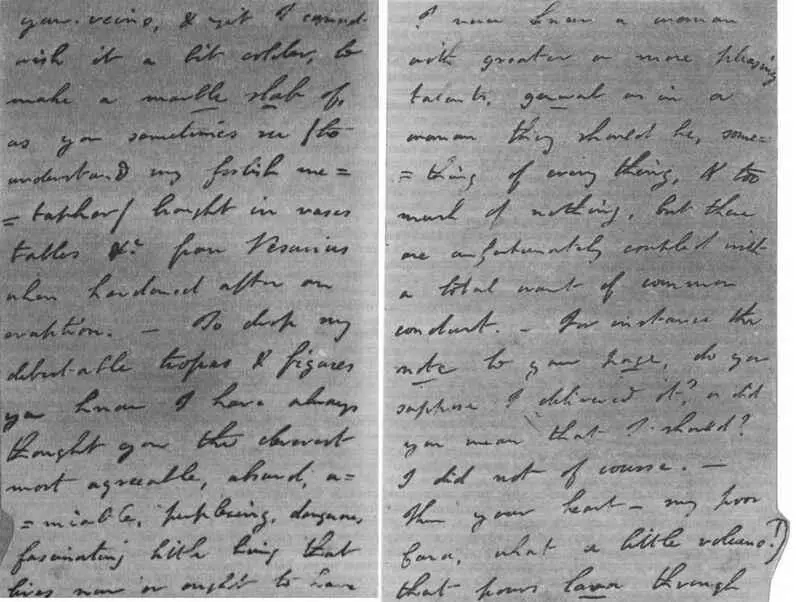 your veins, & yet I cannot
wish it a bit colder, to
make a marble slab of,
as you sometimes see (to
understand my foolish me=
=taphor) brought in vases
tables &c from Vesuvius
when hardened after an
eruption. — To drop my
detestable tropes & figures
you know I have always
thought you the cleverest
most agreeable, absurd, a=
=miable, perplexing, dangerous
fascinating little being that
lives now or ought to have
I never knew a woman
with greater or more pleasing
talents, general as in a
woman they should be, some=
=thing of every thing, & too
much of nothing, but these
are unfortunately coupled with
a total want of common
conduct. — For instance the
note to your page, do you
suppose I delivered it? or did
you mean that I should?
I did not of course. —
Then your heart – my poor
Caro, what a little volcano!
that pours lava through